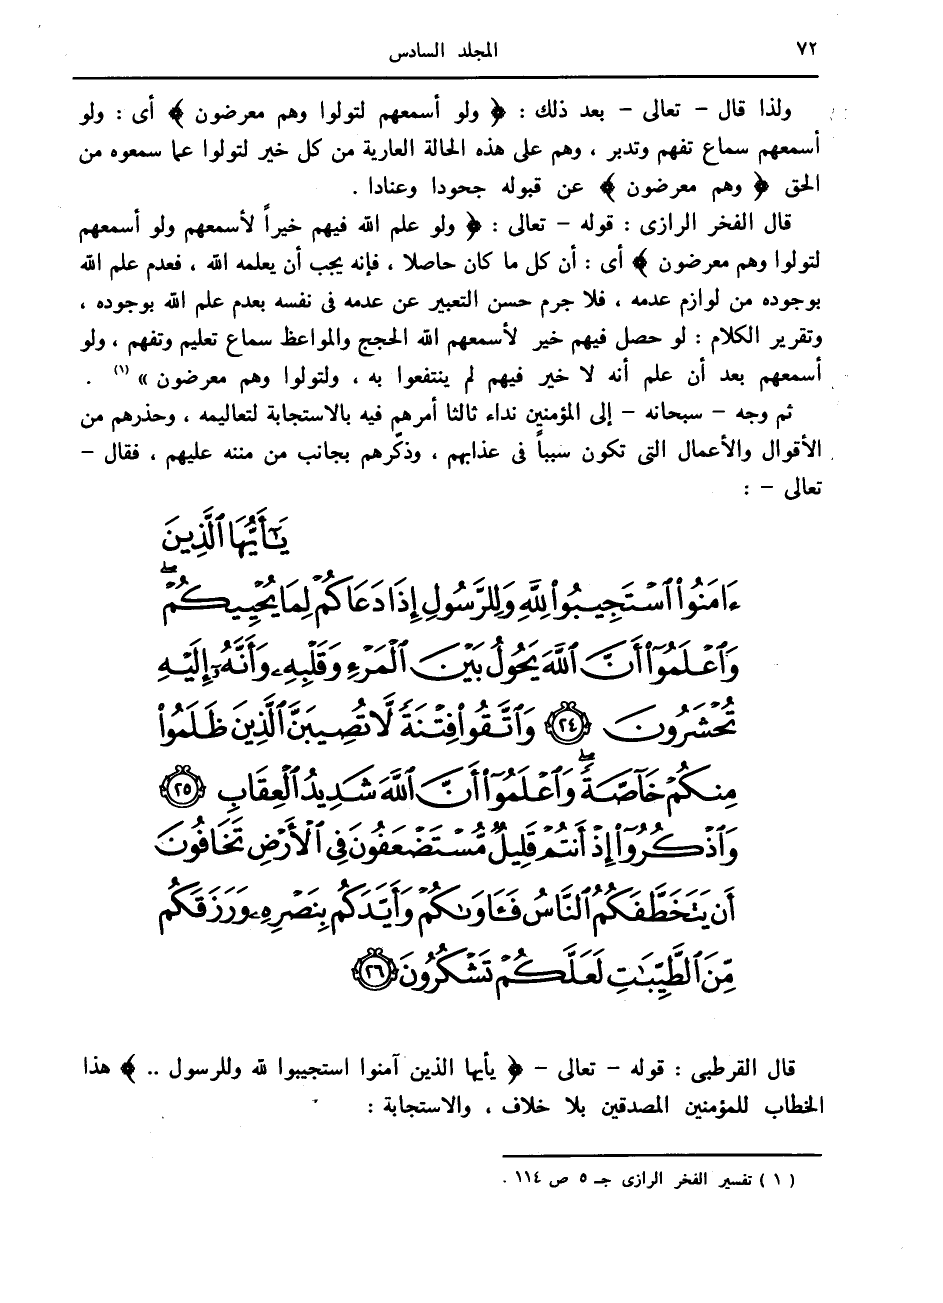 ٧٢
المجلد السادس
ولذا قال – تعالى – بعد ذلك : ﴿ ولو أسمعهم لتولوا وهم معرضون ﴾ أى : ولو
أسمعهم سماع تفهم وتدبر ، وهم على هذه الحالة العارية من كل خير لتولوا عما سمعوه من
الحق ﴿ وهم معرضون ﴾ عن قبوله جحودا وعنادا .
قال الفخر الرازى : قوله – تعالى : ﴿ ولو علم الله فيهم خيراً لأسمعهم ولو أسمعهم
لتولوا وهم معرضون ﴾ أى : أن كل ما كان حاصلا ، فإنه يجب أن يعلمه الله ، فعدم علم الله
بوجوده من لوازم عدمه ، فلا جرم حسن التعبير عن عدمه فى نفسه بعدم علم الله بوجوده ،
وتقرير الكلام : لو حصل فيهم خير لأسمعهم الله الحجج والمواعظ سماع تعليم وتفهم ، ولو
أسمعهم بعد أن علم أنه لا خير فيهم لم ينتفعوا به ، ولتولوا وهم معرضون » (١) .
ثم وجه – سبحانه – إلى المؤمنين نداء ثالثا أمرهم فيه بالاستجابة لتعاليمه ، وحذرهم من
الأقوال والأعمال التى تكون سبباً فى عذابهم ، وذكّرهم بجانب من مننه عليهم ، فقال –
تعالى – :
يَٰٓأَيُّهَا ٱلَّذِينَ
ءَامَنُوا۟ ٱسْتَجِيبُوا۟ لِلَّهِ وَلِلرَّسُولِ إِذَا دَعَاكُمْ لِمَا يُحْيِيكُمْ ۖ
وَٱعْلَمُوٓا۟ أَنَّ ٱللَّهَ يَحُولُ بَيْنَ ٱلْمَرْءِ وَقَلْبِهِۦ وَأَنَّهُۥٓ إِلَيْهِ
تُحْشَرُونَ ﴿٢٤﴾ وَٱتَّقُوا۟ فِتْنَةً لَّا تُصِيبَنَّ ٱلَّذِينَ ظَلَمُوا۟
مِنكُمْ خَآصَّةً ۖ وَٱعْلَمُوٓا۟ أَنَّ ٱللَّهَ شَدِيدُ ٱلْعِقَابِ ﴿٢٥﴾
وَٱذْكُرُوٓا۟ إِذْ أَنتُمْ قَلِيلٌ مُّسْتَضْعَفُونَ فِى ٱلْأَرْضِ تَخَافُونَ
أَن يَتَخَطَّفَكُمُ ٱلنَّاسُ فَـَٔاوَىٰكُمْ وَأَيَّدَكُم بِنَصْرِهِۦ وَرَزَقَكُم
مِّنَ ٱلطَّيِّبَٰتِ لَعَلَّكُمْ تَشْكُرُونَ ﴿٢٦﴾
قال القرطبى : قوله – تعالى – ﴿ يأيها الذين آمنوا استجيبوا لله وللرسول .. ﴾ هذا
الخطاب للمؤمنين المصدقين بلا خلاف ، والاستجابة :
( ١ ) تفسير الفخر الرازى جـ ٥ ص ١١٤ .